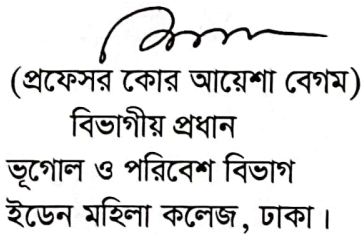 (প্রফেসর কোর আয়েশা বেগম)
বিভাগীয় প্রধান
ভূগোল ও পরিবেশ বিভাগ
ইডেন মহিলা কলেজ, ঢাকা।